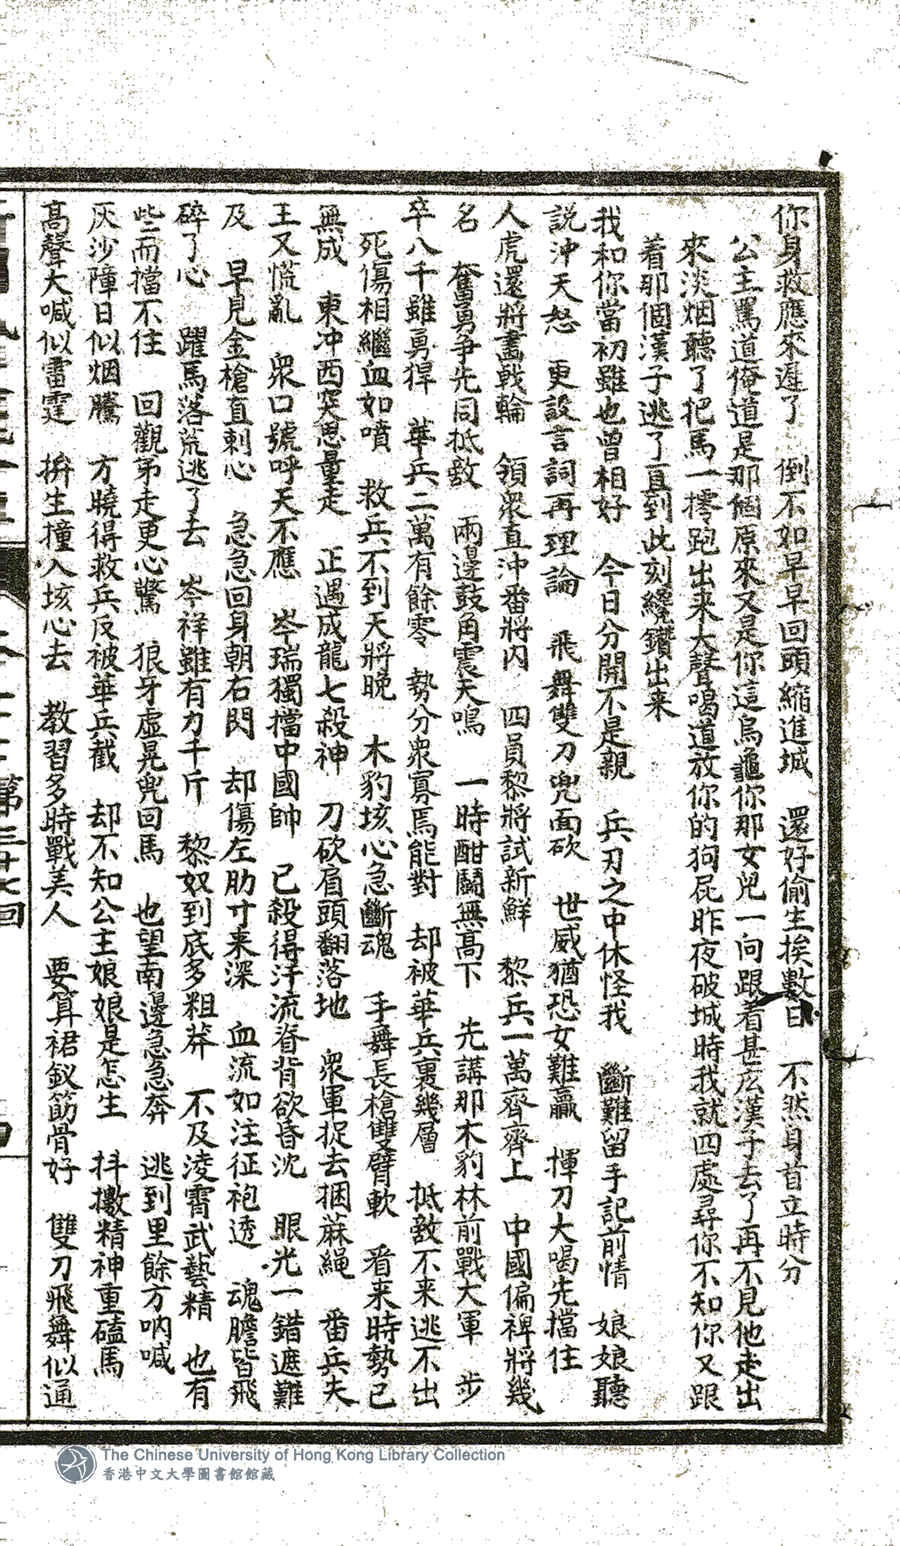 你身救應來遲了　倒不如早早回頭縮進城　還好偷生挨數日　不然身首立時分
公主罵道俺道是那個原來又是你這烏龜你那女兒一向跟着甚庅漢子去了再不見他走出
來淡烟聽了把馬一㩕跑出来大聲喝道放你的狗屁昨夜破城時我就四處尋你不知你又跟
着那個漢子逃了直到此刻纔鑽出来
我和你當初雖也曾相好　今日分開不是親　兵刃之中休怪我　斷難留手記前情　娘娘聽
說沖天怒　更設言詞再理論　飛舞雙刀兜面砍　世威猶恐女難贏　揮刀大喝先擋住
人虎還將畫戟輪　領衆直沖番將內　四員黎將試新鮮　黎兵一萬齊齊上　中國偏裨將幾
名　奮勇爭先同抵敵　兩邊鼓角震天鳴　一時酣鬭無高下　先講那木豹林前戰大軍　步
卒八千雖勇悍　華兵二萬有餘零　勢分衆寡焉能對　却被華兵裹幾層　抵敵不来逃不出
死傷相繼血如噴　救兵不到天將晚　木豹垓心急斷魂　手舞長槍雙臂軟　看来時勢已
無成　東冲西突思量走　正遇成龍七殺神　刀砍眉頭翻落地　衆軍捉去捆蔴繩　番兵夫
王又慌亂　衆口號呼天不應　岑瑞獨擋中國帥　已殺得汗流脊背欲昏沈　眼光一錯遮難
及　早見金槍直刺心　急急回身朝右閃　却傷左肋寸来深　血流如注征袍透　魂膽皆飛
碎了心　躍馬落荒逃了去　岑祥雖有力千斤　黎奴到底多粗莽　不及淩霄武藝精　也有
些而擋不住　回觀弟走更心驚　狼牙虛晃兜回馬　也望南邊急急奔　逃到里餘方吶喊
灰沙障日似烟騰　方曉得救兵反被華兵截　却不知公主娘娘是怎生　抖擻精神重磕馬
高聲大喊似雷霆　拚生撞入垓心去　教習多時戰美人　要算裙釵筋骨好　雙刀飛舞似通
第三十七回
The Chinese University of Hong Kong Library Collection
香港中文大學圖書館館藏